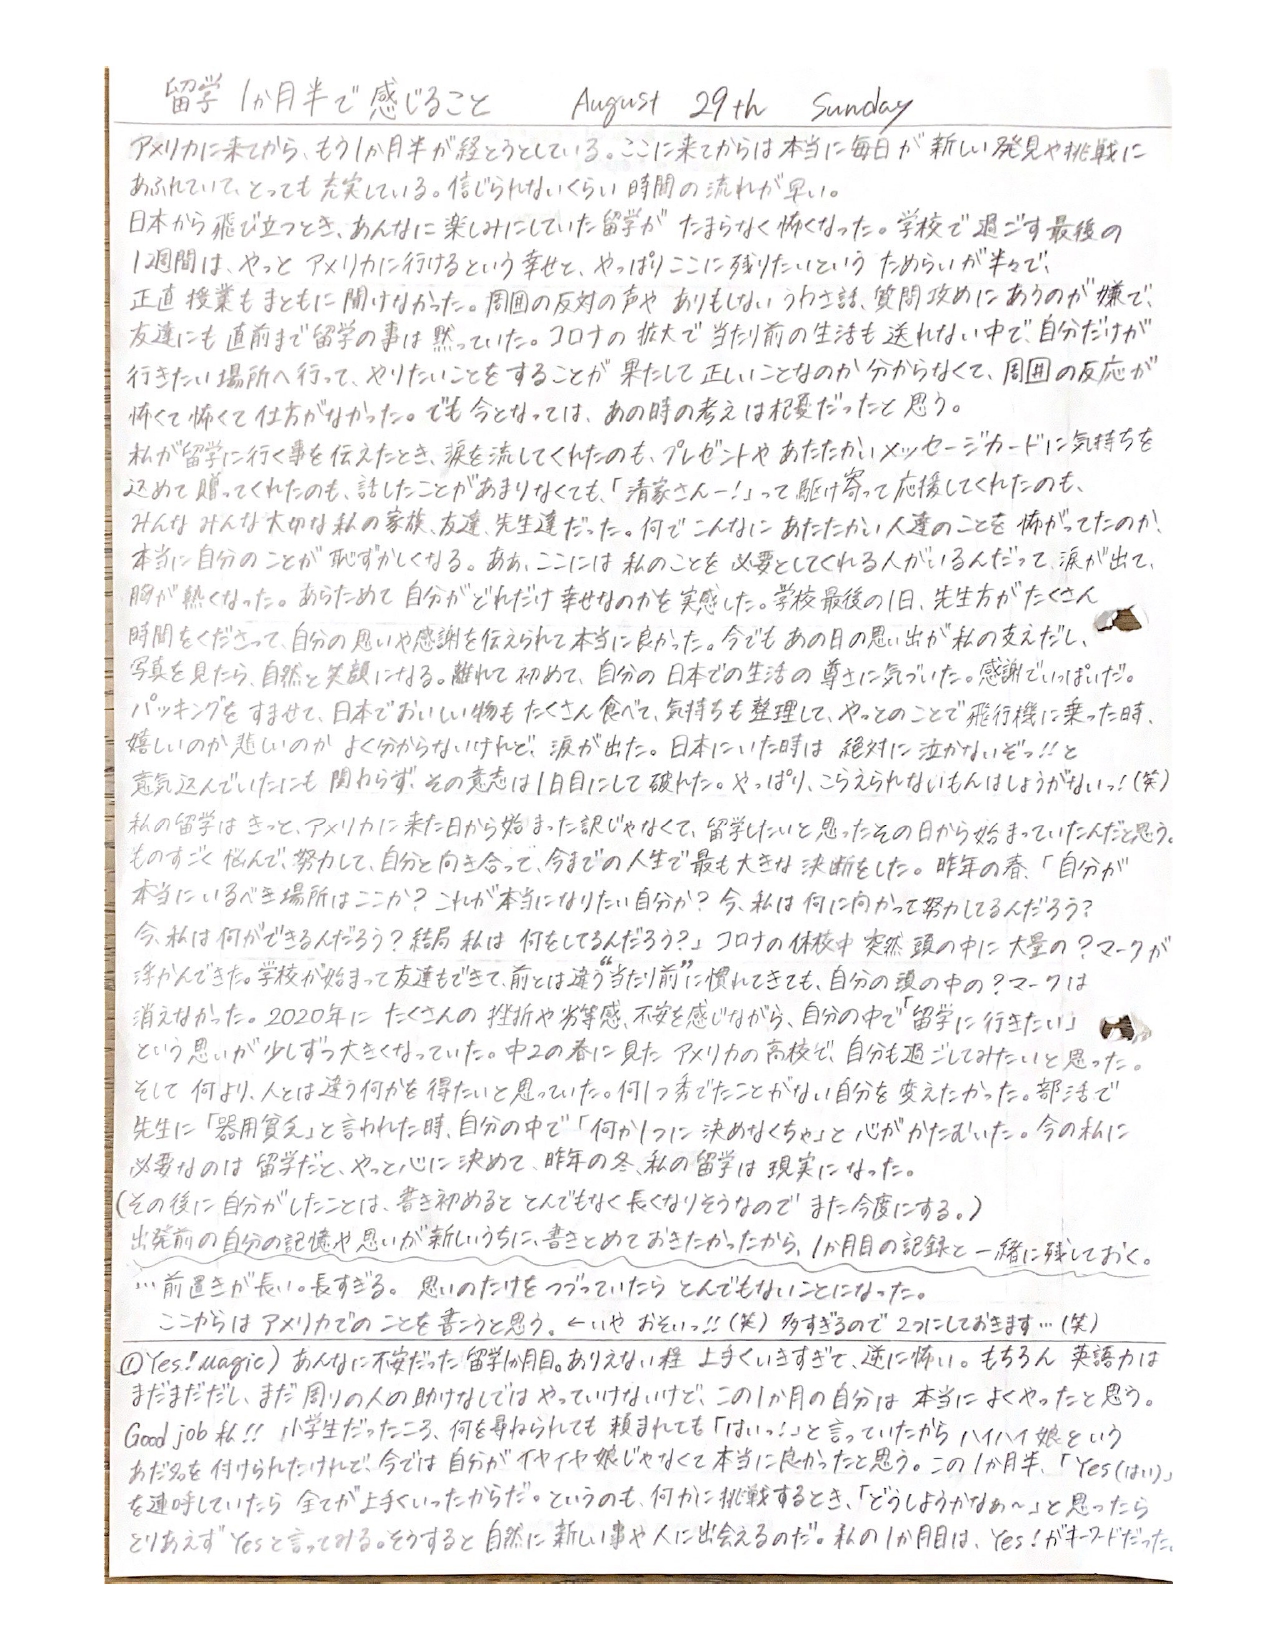 留学 1か月半で感じること August 29th Sunday
アメリカに来てから、もう1か月半が経とうとしている。ここに来てからは本当に毎日が新しい発見や挑戦に
あふれていて、とっても充実している。信じられないくらい時間の流れが早い。
日本から飛び立つとき、あんなに楽しみにしていた留学がたまらなく怖くなった。学校で過ごす最後の
1週間は、やっとアメリカに行けるという幸せと、やっぱりここに残りたいというためらいが半々で、
正直授業もまともに聞けなかった。周囲の反対の声やありもしないうわさ話、質問攻めにあうのが嫌で、
友達にも直前まで留学の事は黙っていた。コロナの拡大で当たり前の生活も送れない中で、自分だけが
行きたい場所へ行って、やりたいことをすることが果たして正しいことなのか分からなくて、周囲の反応が
怖くて怖くて仕方がなかった。でも今となっては、あの時の考えは杞憂だったと思う。
私が留学に行く事を伝えたとき、涙を流してくれたのも、プレゼントやあたたかいメッセージカードに気持ちを
込めて贈ってくれたのも、話したことがあまりなくても、「清家さんー!」って駆け寄って応援してくれたのも、
みんなみんな大切な私の家族、友達、先生達だった。何でこんなにあたたかい人達のことを怖がってたのか、
本当に自分のことが恥ずかしくなる。ああ、ここには私のことを必要としてくれる人がいるんだって、涙が出て、
胸が熱くなった。あらためて自分がどれだけ幸せなのかを実感した。学校最後の1日、先生方がたくさん
時間をくださって、自分の思いや感謝を伝えられて本当に良かった。今でもあの日の思い出が私の支えだし、
写真を見たら、自然と笑顔になる。離れて初めて、自分の日本での生活の尊さに気づいた。感謝でいっぱいだ。
パッキングをすませて、日本でおいしい物もたくさん食べて、気持ちも整理して、やっとのことで飛行機に乗った時、
嬉しいのか悲しいのかよく分からないけれど、涙が出た。日本にいた時は絶対に泣かないぞっ!!と
意気込んでいたにも関わらず、その意志は1日目にして破れた。やっぱり、こらえられないもんはしょうがないっ!(笑)
私の留学はきっと、アメリカに来た日から始まった訳じゃなくて、留学したいと思ったその日から始まっていたんだと思う。
ものすごく悩んで、努力して、自分と向き合って、今までの人生で最も大きな決断をした。昨年の春、「自分が
本当にいるべき場所はここか?これが本当になりたい自分か?今、私は何に向かって努力してるんだろう?
今、私は何ができるんだろう?結局私は何をしてるんだろう?」コロナの休校中突然頭の中に大量の?マークが
浮かんできた。学校が始まって友達もできて、前とは違う“当たり前”に慣れてきても、自分の頭の中の?マークは
消えなかった。2020年にたくさんの挫折や劣等感、不安を感じながら、自分の中で「留学に行きたい」
という思いが少しずつ大きくなっていた。中2の春に見たアメリカの高校で、自分も過ごしてみたいと思った。
そして何より、人とは違う何かを得たいと思っていた。何1つ秀でたことがない自分を変えたかった。部活で
先生に「器用貧乏」と言われた時、自分の中で「何か1つに決めなくちゃ」と心がかたむいた。今の私に
必要なのは留学だと、やっと心に決めて、昨年の冬、私の留学は現実になった。
(その後に自分がしたことは、書き初めるととんでもなく長くなりそうなのでまた今度にする。)
出発前の自分の記憶や思いが新しいうちに、書きとめておきたかったから、1か月目の記録と一緒に残しておく。
…前置きが長い。長すぎる。思いのたけをつづっていたらとんでもないことになった。
ここからはアメリカでのことを書こうと思う。←いやおそいっ!!(笑)多すぎるので2つにしておきます…(笑)
①Yes!Magic) あんなに不安だった留学1か月目。ありえない程上手くいきすぎて、逆に怖い。もちろん英語力は
まだまだだし、まだ周りの人の助けなしではやっていけないけど、この1か月の自分は本当によくやったと思う。
Good job 私!! 小学生だったころ、何を尋ねられても頼まれても「はいっ!」と言っていたからハイハイ娘という
あだ名を付けられたけれど、今では自分がイヤイヤ娘じゃなくて本当に良かったと思う。この1か月半、「Yes(はい)」
を連呼していたら全てが上手くいったからだ。というのも、何かに挑戦するとき、「どうしようかなぁ〜」と思ったら
とりあえずYesと言ってみる。そうすると自然に新しい事や人に出会えるのだ。私の1か月目は、Yes!がキーワードだった。